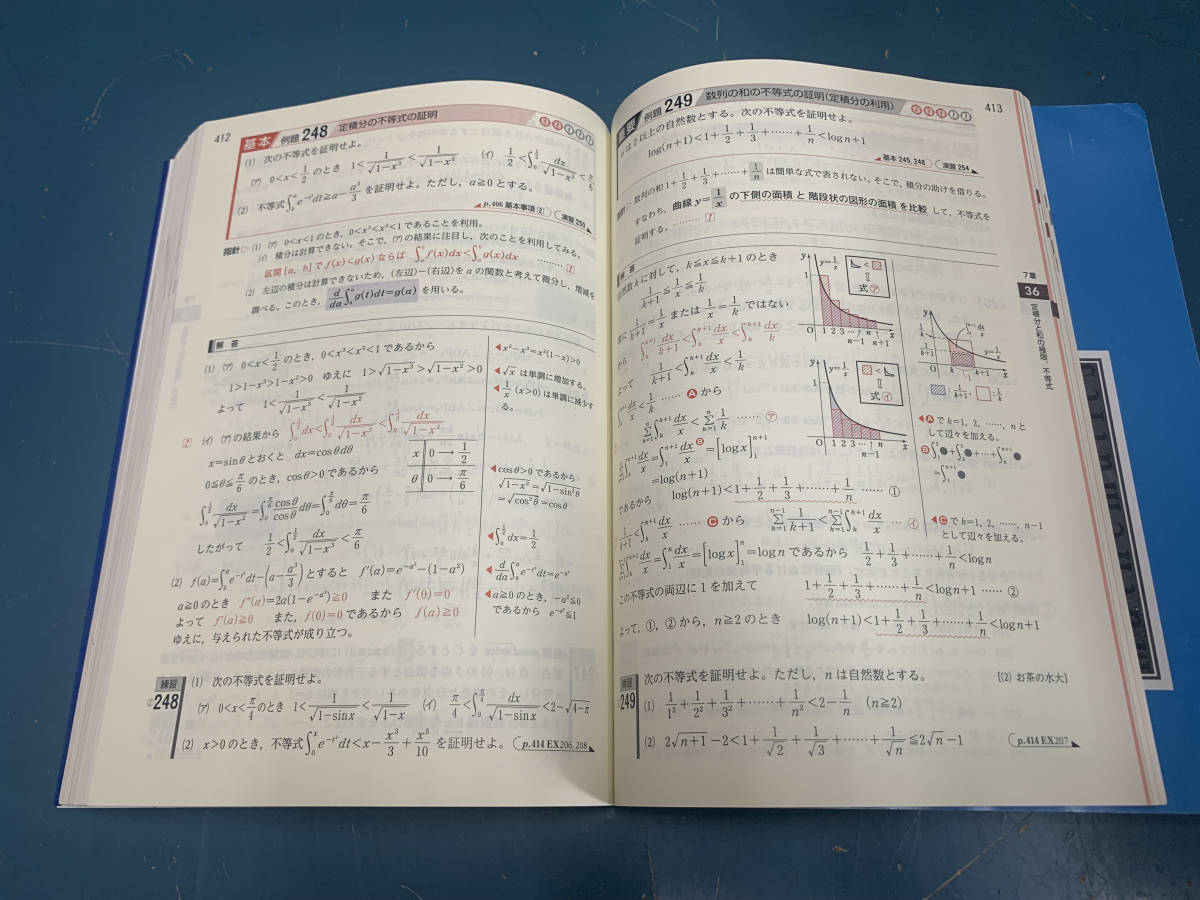 412
基本 例題 248 定積分の不等式の証明
(1) 次の不等式を証明せよ。
(ア) 0<x<1/2 のとき 1<1/√(1-x³)<1/√(1-x²) (イ) 1/2<∫₀^{1/2} dx/√(1-x³)<π/6
(2) 不等式∫₀^a e^{-t²}dt≧a-a³/3 を証明せよ。ただし，a≧0 とする。
p.406 基本事項 2 演習 250
指針 (1) (ア) 0<x<1のとき，0<x³<x²<1であることを利用。
(イ) 積分は計算できない。そこで，(ア)の結果に注目し，次のことを利用してみる。
区間[a, b]で f(x)<g(x)ならば ∫f(x)dx<∫g(x)dx ………
(2) 左辺の積分は計算できないため，(左辺)-(右辺)を a の関数と考えて微分し，増減を
調べる。このとき，d/da∫g(t)dt=g(a) を用いる。
解答
(1) (ア) 0<x<1/2 のとき，0<x³<x²<1 であるから
1>1-x³>1-x²>0 ゆえに 1>√(1-x³)>√(1-x²)>0
よって 1<1/√(1-x³)<1/√(1-x²)
(イ) (ア)の結果から ∫₀^{1/2}dx<∫₀^{1/2}dx/√(1-x³)<∫₀^{1/2}dx/√(1-x²)
x=sinθとおくと，dx=cosθdθ
0≦θ≦π/6 のとき，cosθ>0であるから
∫₀^{1/2} dx/√(1-x²)=∫₀^{π/6} cosθ/cosθ dθ=∫₀^{π/6}dθ=π/6
したがって 1/2<∫₀^{1/2} dx/√(1-x³)<π/6
x 0→1/2
θ 0→π/6
(2) f(a)=∫₀^a e^{-t²}dt-(a-a³/3)とすると f'(a)=e^{-a²}-(1-a²)
a≧0のとき f''(a)=2a(1-e^{-a²})≧0 また f'(0)=0
よって f'(a)≧0 また，f(0)=0であるから f(a)≧0
ゆえに，与えられた不等式が成り立つ。
x²-x³=x²(1-x)>0
√x は単調に増加する。
1/x (x>0)は単調に減少する。
cosθ>0であるから
√(1-x²)=√(1-sin²θ)
=√cos²θ=cosθ
∫₀^{1/2}dx=1/2
d/da∫₀^a e^{-t²}dt=e^{-a²}
a≧0のとき，-a²≦0
であるから e^{-a²}≦1
練習
②248
(1) 次の不等式を証明せよ。
(ア) 0<x<π/4 のとき 1<1/√(1-sinx)<1/√(1-x) (イ) π/4<∫₀^{π/4} dx/√(1-sinx)<2-√(4-π)
(2) x>0のとき，不等式∫₀^x e^{-t²}dt<x-x³/3+x⁵/10 を証明せよ。
p.414 EX206, 208
重要 例題 249 数列の和の不等式の証明(定積分の利用)
413
nは2以上の自然数とする。次の不等式を証明せよ。
log(n+1)<1+1/2+1/3+……+1/n<logn+1
基本 245, 248 演習 254
数列の和 1+1/2+1/3+……+1/n は簡単な式で表されない。そこで，積分の助けを借りる。
すなわち，曲線 y=1/x の下側の面積 と 階段状の図形の面積 を比較 して，不等式を
証明する。………
解答
自然数 k に対して，k≦x≦k+1 のとき
1/(k+1)≦1/x≦1/k
1/(k+1)=1/x または 1/x=1/k ではない
から ∫_k^{k+1} dx/(k+1)<∫_k^{k+1} dx/x<∫_k^{k+1} dx/k
よって 1/(k+1)<∫_k^{k+1} dx/x<1/k
∫_k^{k+1} dx/x<1/k …… A から
Σ∫_k^{k+1} dx/x<Σ_{k=1}^n 1/k …… ㋐
Σ∫_k^{k+1} dx/x=∫₁^{n+1} dx/x=[logx]₁^{n+1}
=log(n+1)
であるから log(n+1)<1+1/2+1/3+……+1/n …… ①
1/(k+1)<∫_k^{k+1} dx/x …… C から Σ_{k=1}^{n-1} 1/(k+1)<Σ_{k=1}^{n-1}∫_k^{k+1} dx/x … ㋑
Σ∫_k^{k+1} dx/x=∫₁^n dx/x=[logx]₁^n=logn であるから 1/2+1/3+……+1/n<logn
この不等式の両辺に 1 を加えて 1+1/2+1/3+……+1/n<logn+1 …… ②
よって，①，②から，n≧2のとき log(n+1)<1+1/2+1/3+……+1/n<logn+1
y=1/x
式㋐
O 1 2 3 … n n-1 n+1 x
y=1/x
式㋑
O 1 2 3 … n n-1 x
Aで k=1, 2, ……, n と
して辺々を加える。
B
Cで k=1, 2, ……, n-1
として辺々を加える。
7章
36
定積分と和の極限，不等式
練習
249
次の不等式を証明せよ。ただし，n は自然数とする。
[(2) お茶の水大]
(1) 1/1²+1/2²+1/3²+……+1/n²<2-1/n (n≧2)
(2) 2√(n+1)-2<1+1/√2+1/√3+……+1/√n≦2√n-1
p.414 EX207